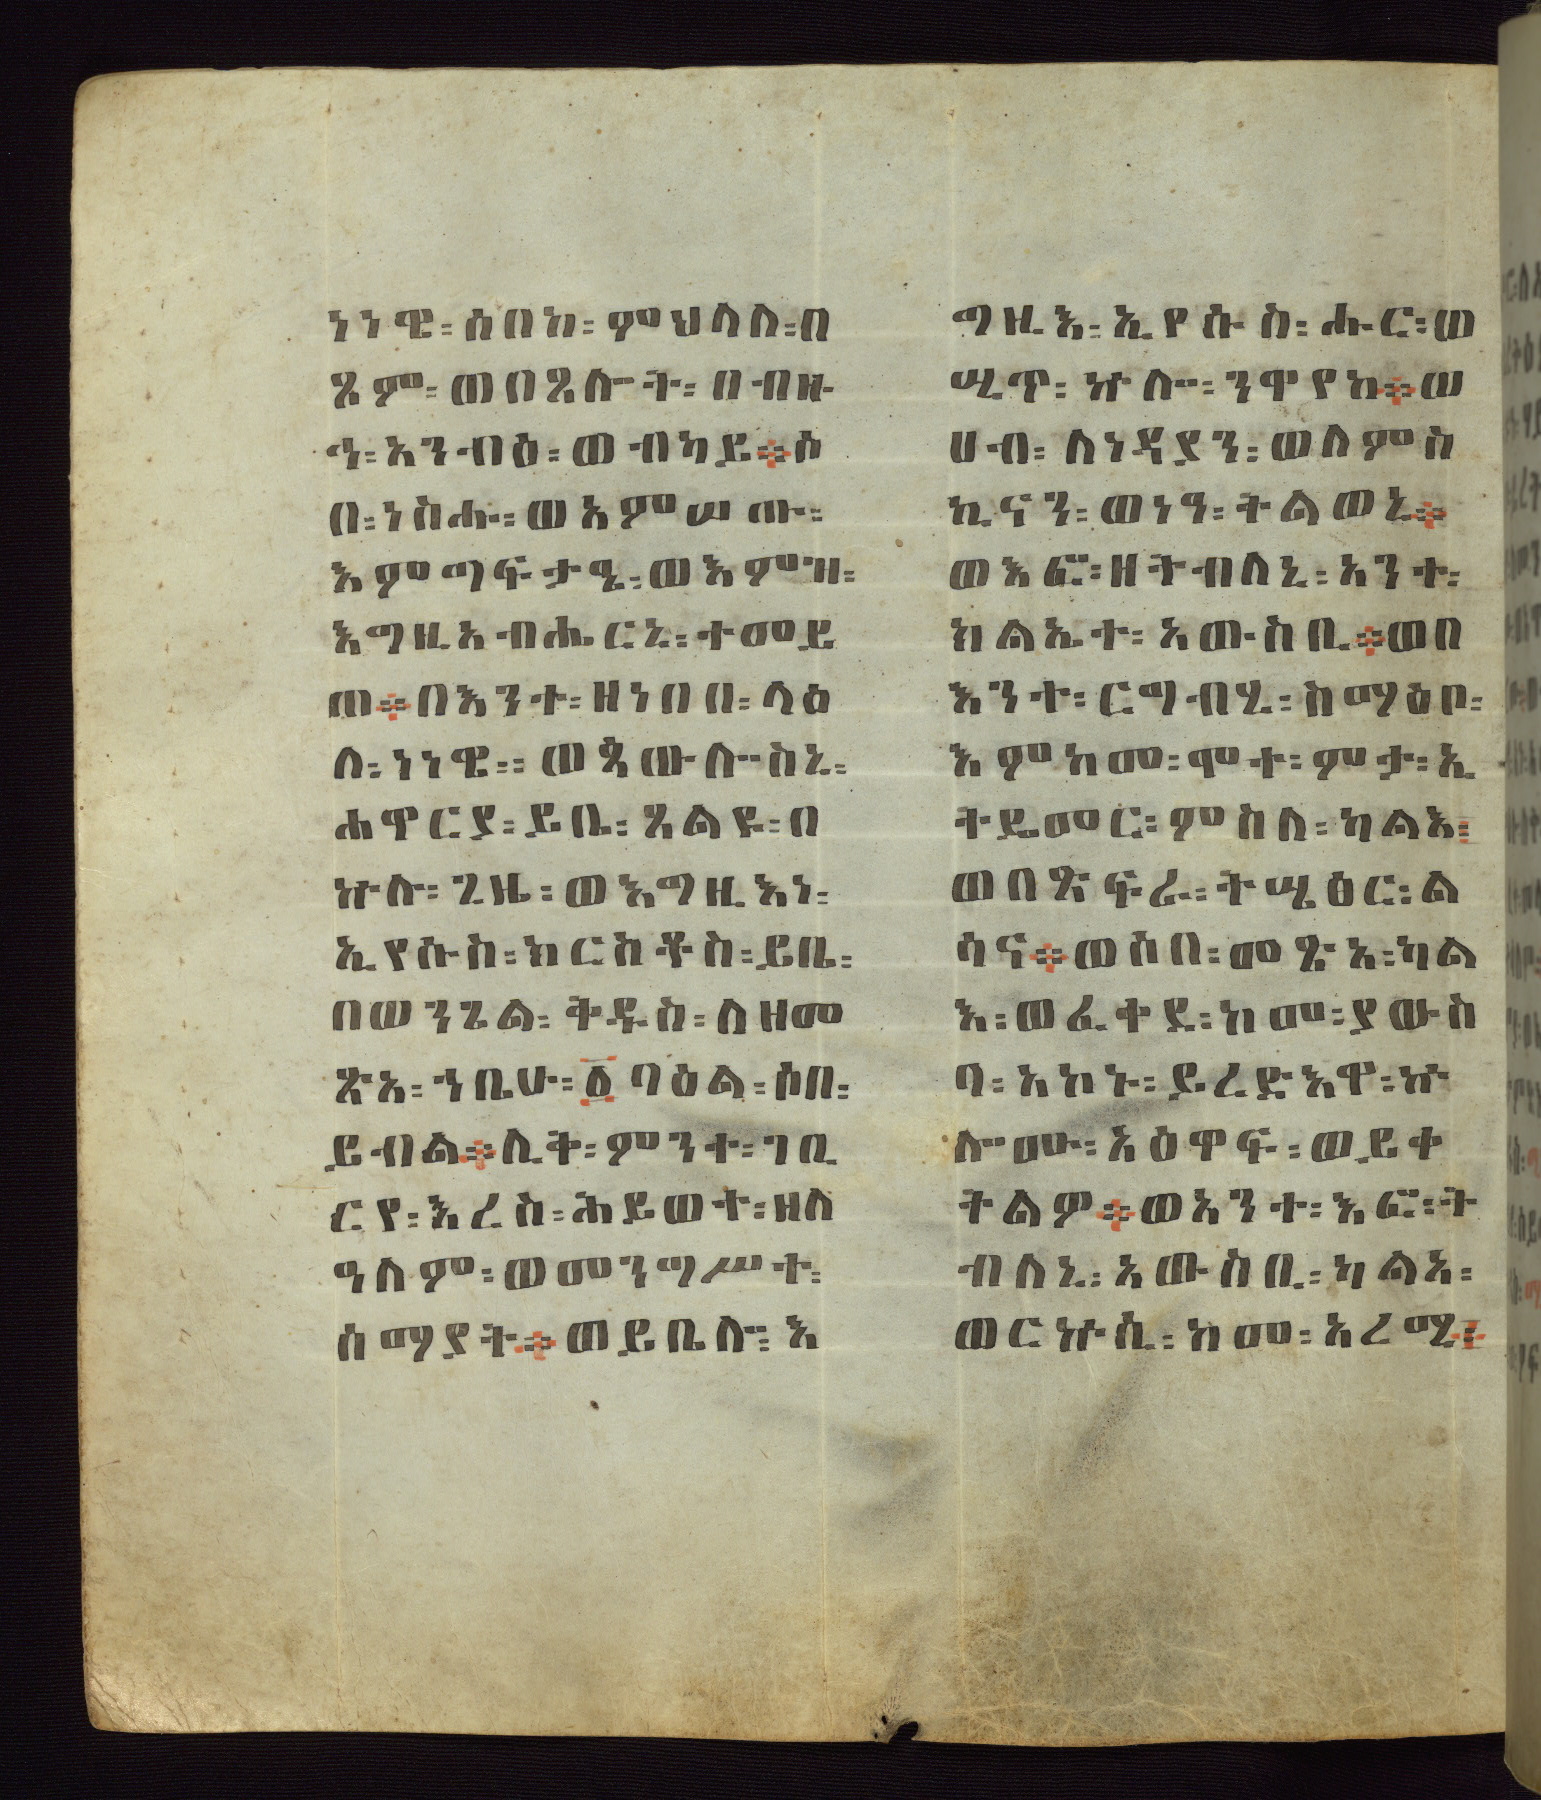 ነነዌ፡ ሰበከ፡ ምህላለ፡ በ
ጾም፡ ወበጸሎት፡ በብዙ
ኀ፡ አንብዕ፡ ወብካይ። ሶ
በ፡ ነስሐ፡ ወአምሠጡ፡
እምማፍታዌ፡ ወእምዝ፡
እግዚአብሔርኒ፡ ተመይ
ጠ። በእንተ፡ ዘነበበ፡ ላዕ
ለ፡ ነነዌ፡፡ ወጳውሎስኒ፡
ሐዋርያ፡ ይቤ፡ ጸልዩ፡ በ
ኵሉ፡ ጊዜ፡ ወእግዚእነ፡
ኢየሱስ፡ ክርስቶስ፡ ይቤ፡
በወንጌል፡ ቅዱስ፡ ለዘመ
ጽአ፡ ኀቤሁ፡ ፩ ባዕል፡ ሶበ፡
ይብል። ሊቅ፡ ምንተ፡ ገቢ
ርየ፡ እረስ፡ ሕይወተ፡ ዘለ
ዓለም፡ ወመንግሥተ፡
ሰማያት። ወይቤሎ፡ እ
ግዚእ፡ ኢየሱስ፡ ሑር፡ ወ
ሢጥ፡ ኵሎ፡ ንዋየከ። ወ
ሀብ፡ ለነዳያን፡ ወለምስ
ኪናን፡ ወነዓ፡ ትልወኒ።
ወእፎ፡ ዘትብለኒ፡ አንተ፡
ክልኤተ፡ አውስቢ። ወበ
እንተ፡ ርግብሂ፡ ስማዕቦ፡
እምከመ፡ ሞተ፡ ምታ፡ ኢ
ትዴመር፡ ምስለ፡ ካልእ፡
ወበጽፍራ፡ ትሤዕር፡ ል
ሳና። ወሶበ፡ መጽአ፡ ካል
እ፡ ወፈቀደ፡ ከመ፡ ያውስ
ባ፡ አኮኑ፡ ይረድእዋ፡ ኵ
ሎሙ፡ አዕዋፍ፡ ወይቀ
ትልዎ። ወአንተ፡ እፎ፡ ት
ብለኒ፡ አውስቢ፡ ካልእ፡
ወርኵሲ፡ ከመ፡ አረሚ።